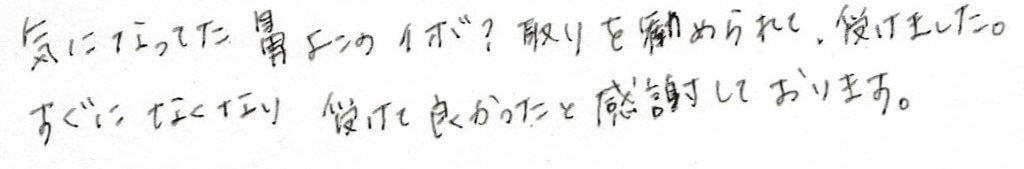 気になってた鼻よこのイボ？取りを勧められて、受けました。
すぐになくなり 受けて良かったと感謝しております。